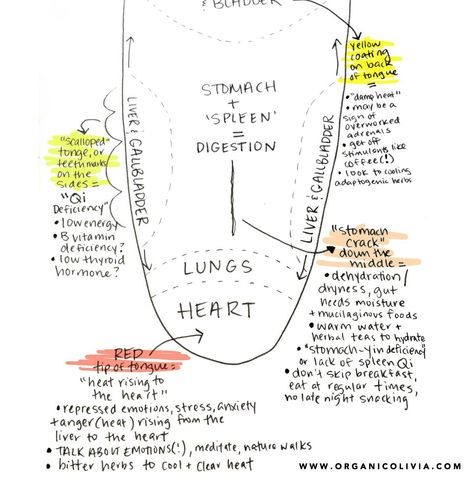 & BLADDER
yellow
coating
on back
of tongue
=
• "damp heat"
• may be a
sign of
overworked
adrenals
• get off
stimulants like
coffee(!)
• look to cooling
adaptogenic herbs
STOMACH
+
'SPLEEN'
=
DIGESTION
LIVER & GALLBLADDER
LIVER & GALLBLADDER
"scalloped"
tonge, or
teeth marks
on the
sides =
"Qi
Deficiency"
• low energy
• B vitamin
deficiency?
• low thyroid
hormone?
LUNGS
HEART
"stomach
crack"
down the
middle =
• dehydration/
dryness, gut
needs moisture
+ mucilaginous foods
• warm water +
herbal teas to hydrate
• "stomach-yin deficiency"
or lack of spleen Qi
• don't skip breakfast,
eat at regular times,
no late night snacking
RED
tip of tongue =
"heat rising to
the heart"
• repressed emotions, stress, anxiety
+ anger (heat) rising from the
liver to the heart
• TALK ABOUT EMOTIONS(!), meditate, nature walks
• bitter herbs to cool + clear heat
WWW.ORGANICOLIVIA.COM